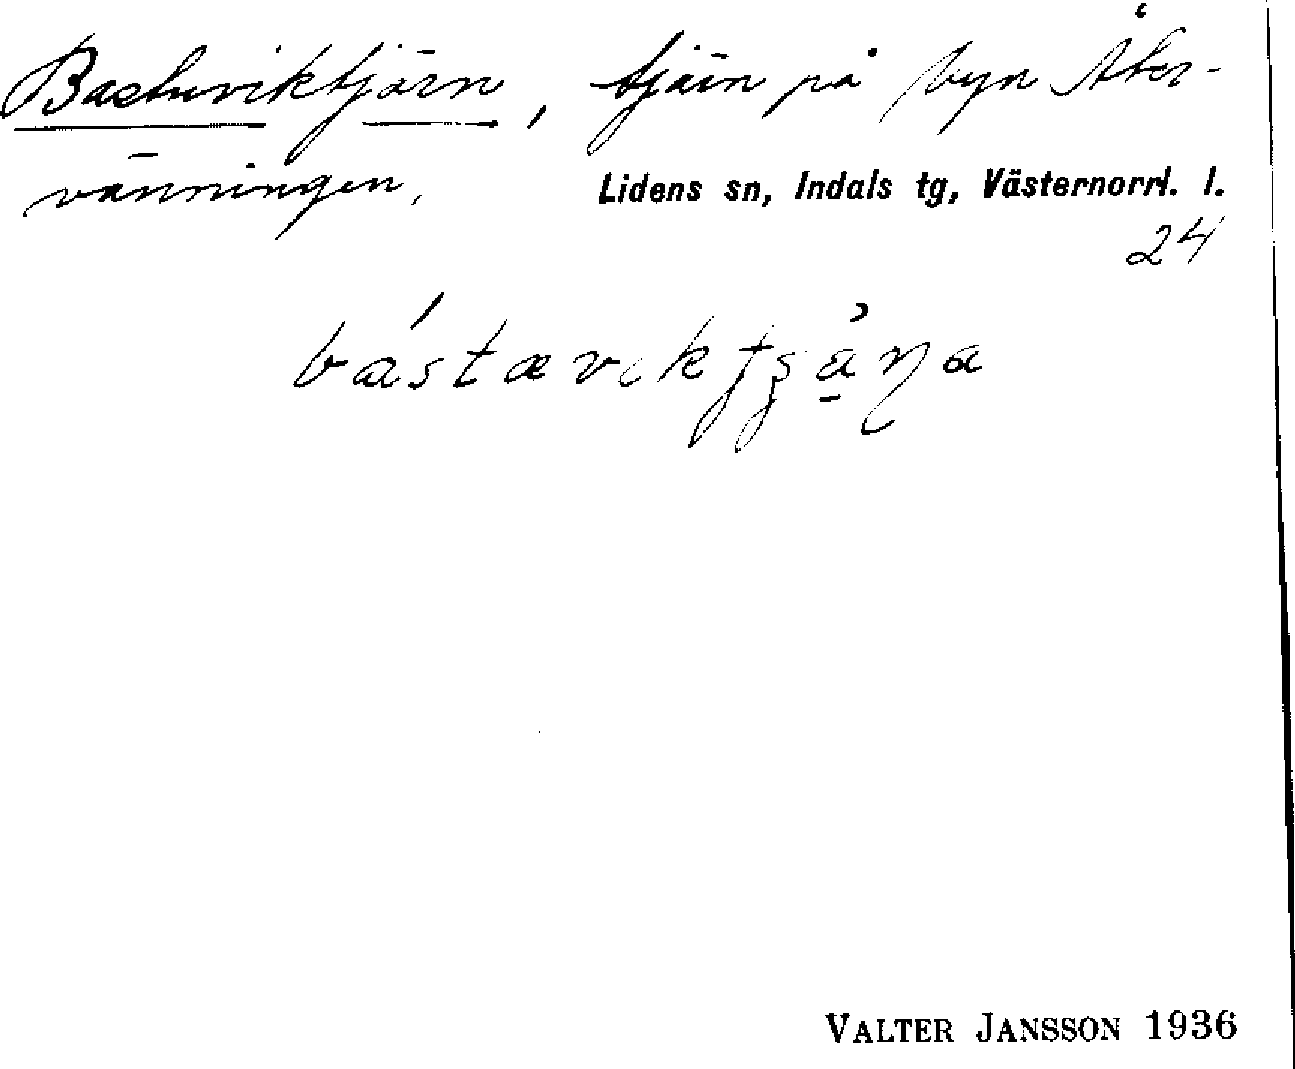 Bastuviktjärn, tjärn på byn Åker-
vänningen,
Lidens sn, Indals tg, Västernorrl. l.
24
VALTER JANSSON 1936